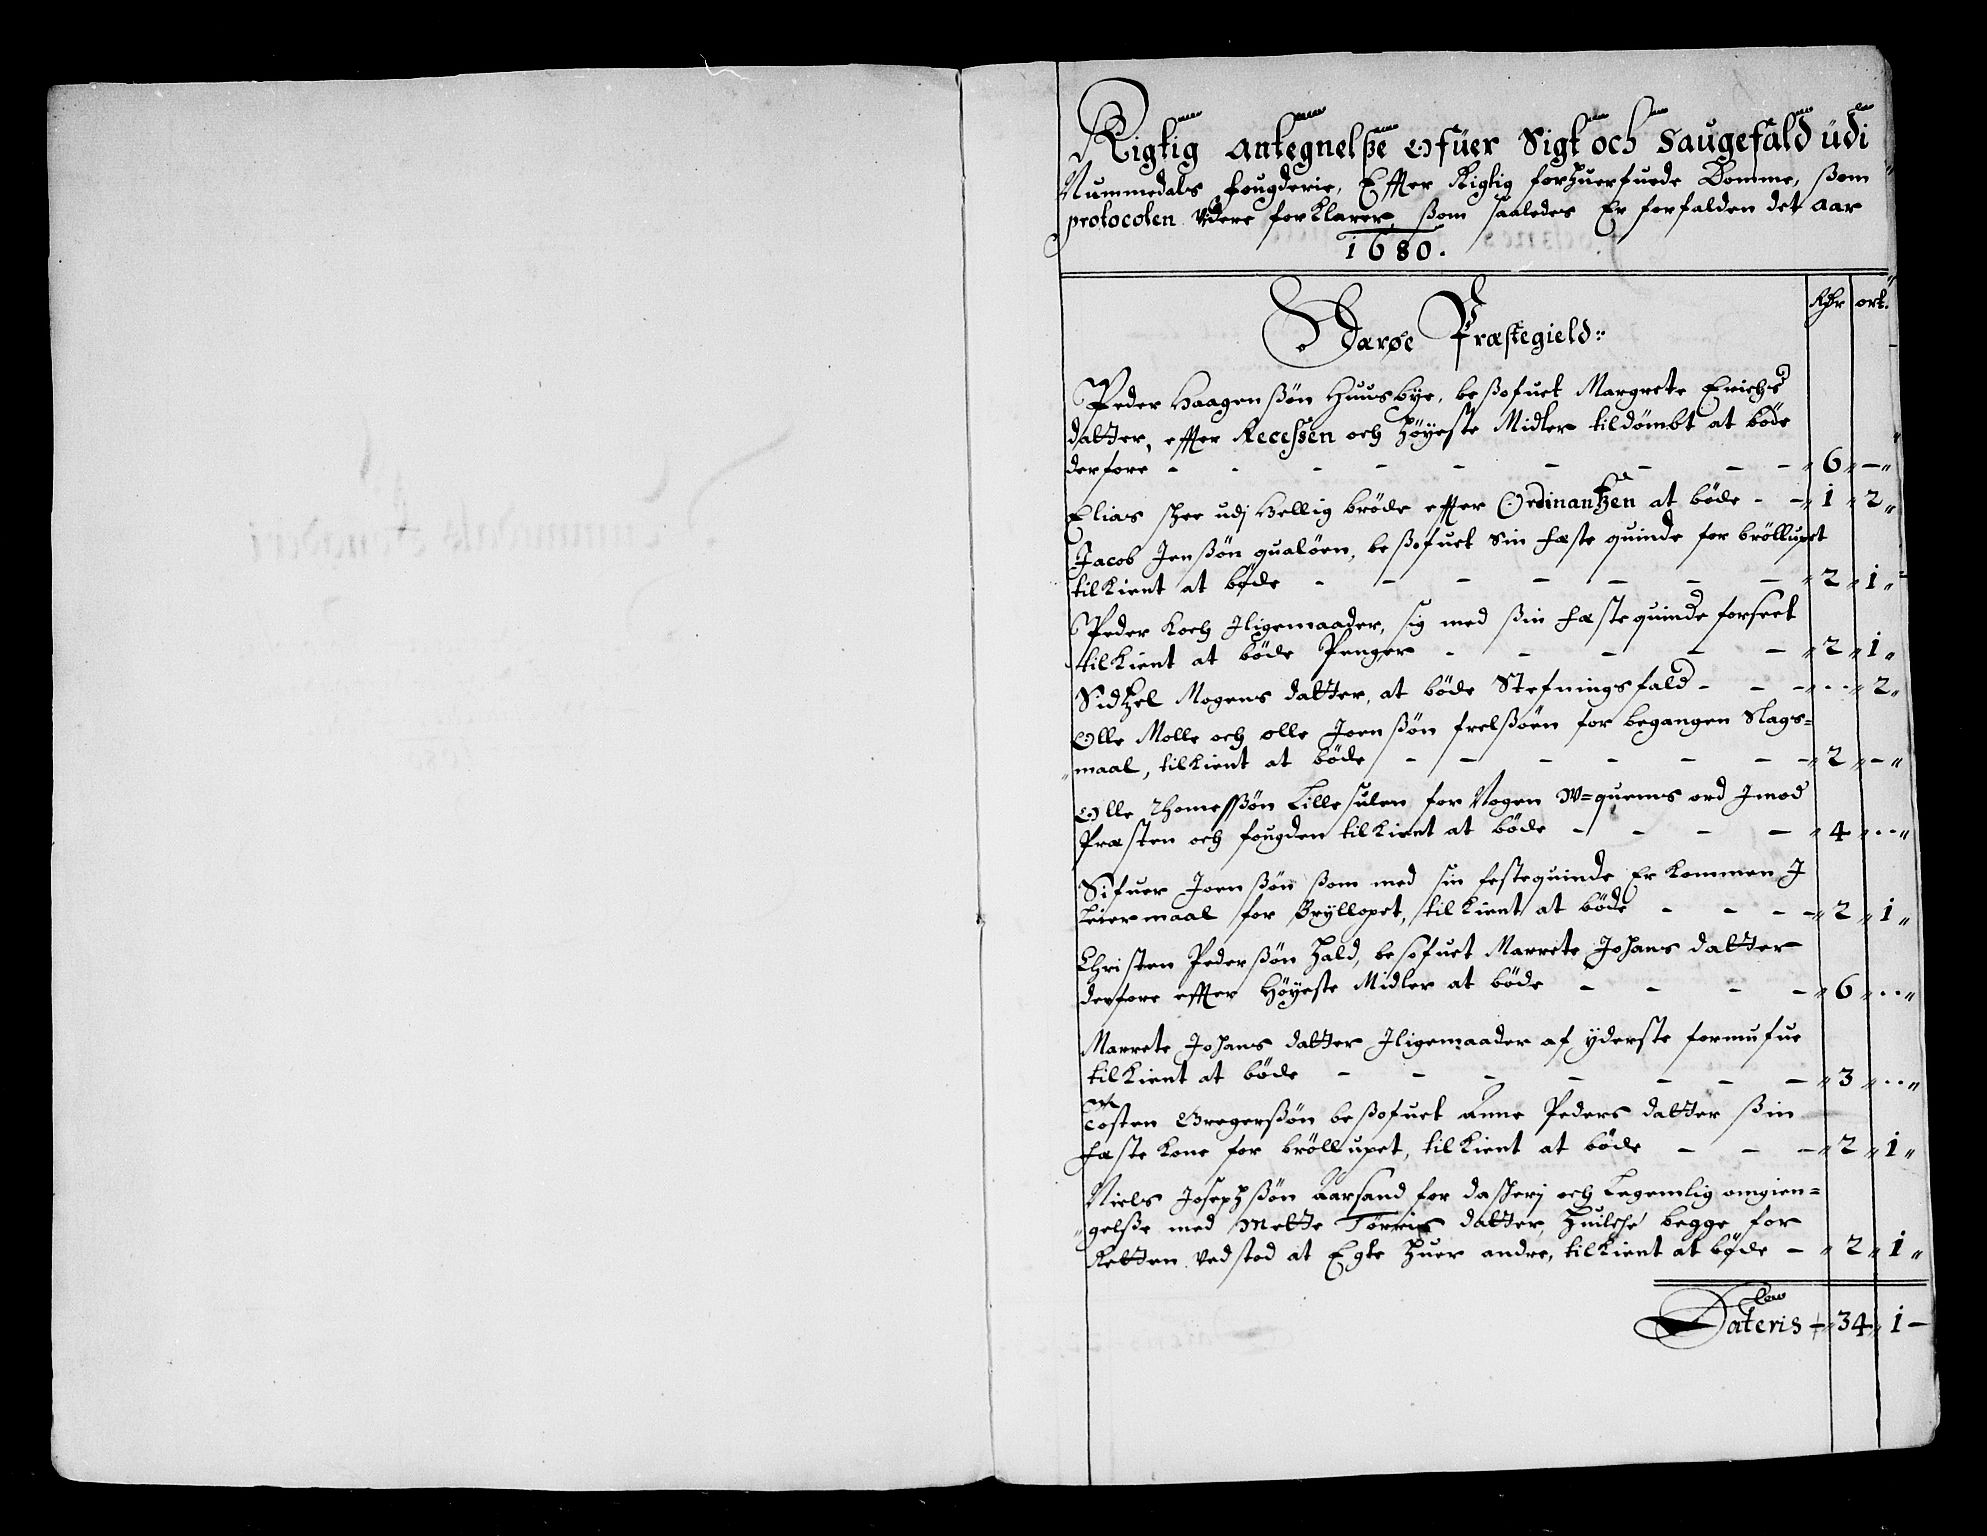 Rigtig antegnelsse ofuer Sigt och Saugefald udi
Nummedals fougderie, Effter Rigtig forhuerfuede Domme, ßom
protocolen videre forklarer, ßom saaledes Er forfalden det aar
1680.
Rdr ort.
Nærøe Præstegield::
Peder Haagenßøn Huusbye, beßofuet Margrete Erichs
datter, effter Recessen och høyeste Midler tildømbt at bøde
derfore - - - - - - - - 6 -
Elias udj Hellig brøde effter Ordinantzen at bøde - - 1 2
Jacob Jenßøn qualøen, beßofuet sin fæste quinde for brøllupet
tilkient at bøde - - - - - - - 2 1
Peder Koch Jligemaader, sig med ßin fæstequinde forseet
tilkient at bøde Penger - - - - - 2 1
Sidtzel Mogens datter, at bøde Stefningsfald - - - .. 2
Olle Molle och olle Joenßøn frelßøen for begangen Slags=
maal, tilkient at bøde - - - - - - 2 -
Olle Thomesßøn Lille sulen for Nogen w=quems ord Jmod
Præsten och fougden tilkient at bøde - - - - 4 ..
Sifuer Joenßøn ßom med sin festequinde Er kommen J
Leiermaal for Bryllopet, tilkient at bøde - - - - 2 1
Christen Pederßøn Hald, besofuet Marrete Johans datter
derfore effter Høyeste Midler at bøde - - - - 6 ..
Marrete Johans datter Jligemaader af yderste formufue
tilkient at bøde - - - - - - - 3 ..
Tosten Gregerßøn beßofuet Anne Peders datter ßin
fæste kone for brøllupet, tilkient at bøde - - - 2 1
Niels Josephßøn Aarsand for och Legemlig omgien=
gelße med Mette Tørris datter, huilche begge for
Retten vedstod at Egte huer andre, tilkient at bøde - 2 1
Lateris - 34 1 -